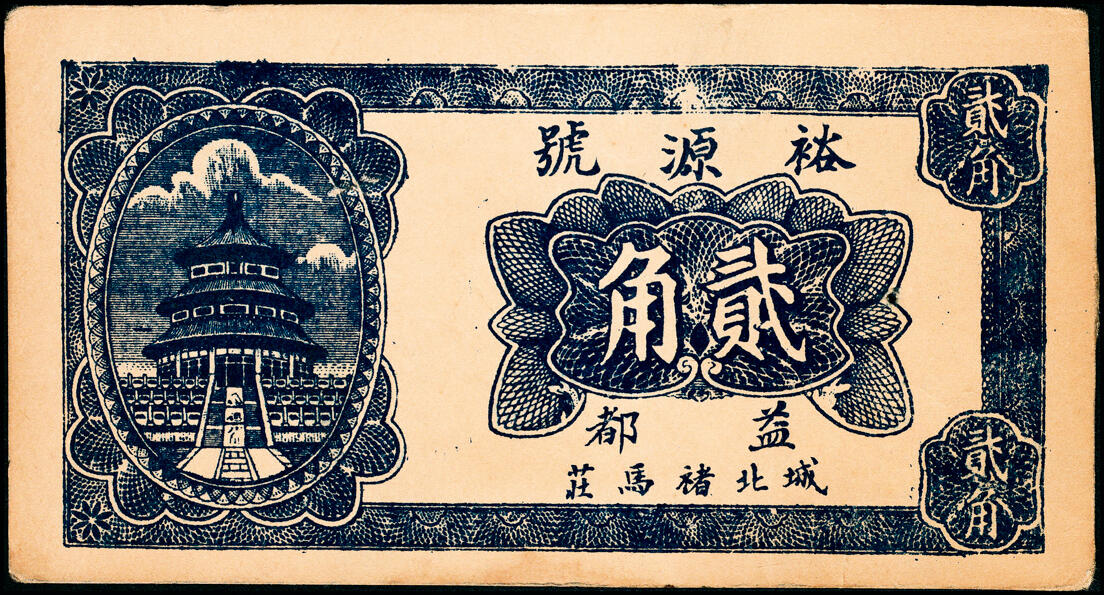 裕源號
貳角
貳角
益都
城北褚馬莊
貳角